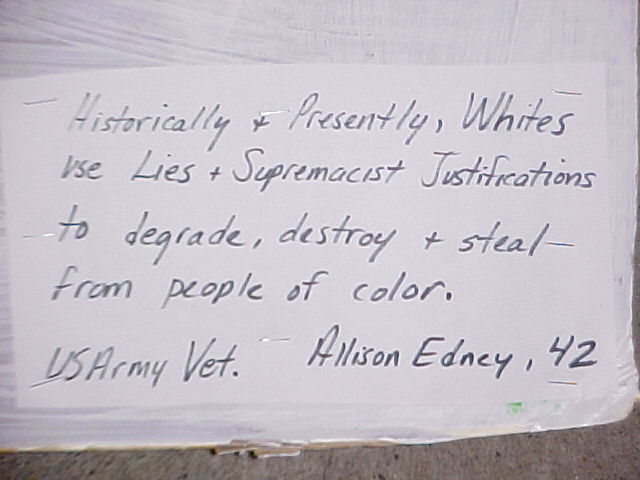 Historically + Presently, Whites
use Lies + Supremacist Justifications
to degrade, destroy + steal
from people of color.
US Army Vet. Allison Edney, 42